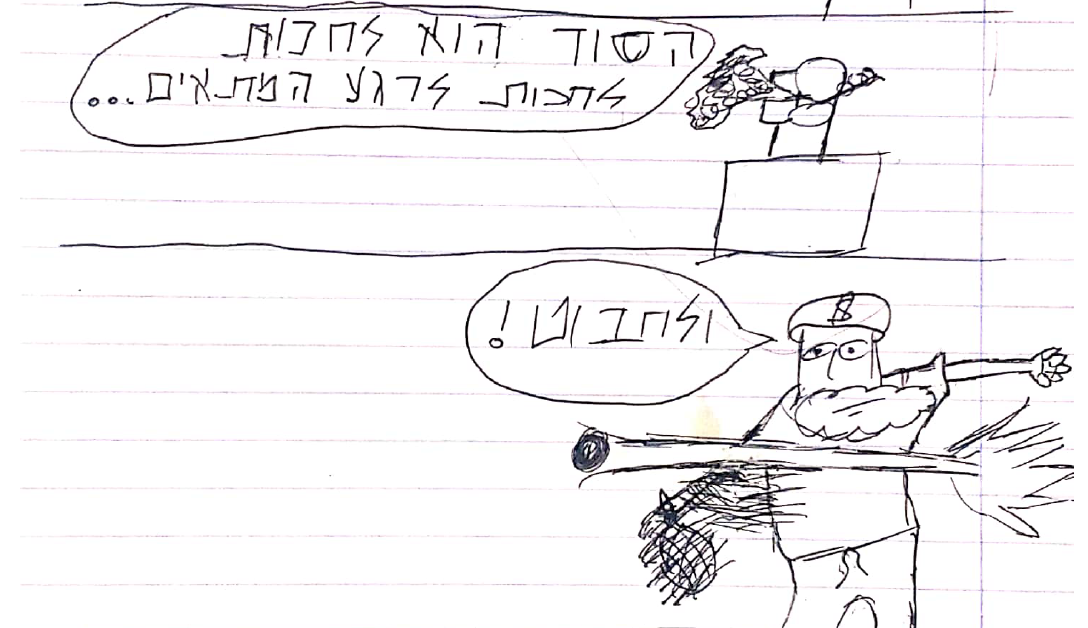 הסוד הוא לחכות
לחכות לרגע המתאים...
ולחבוט!
B